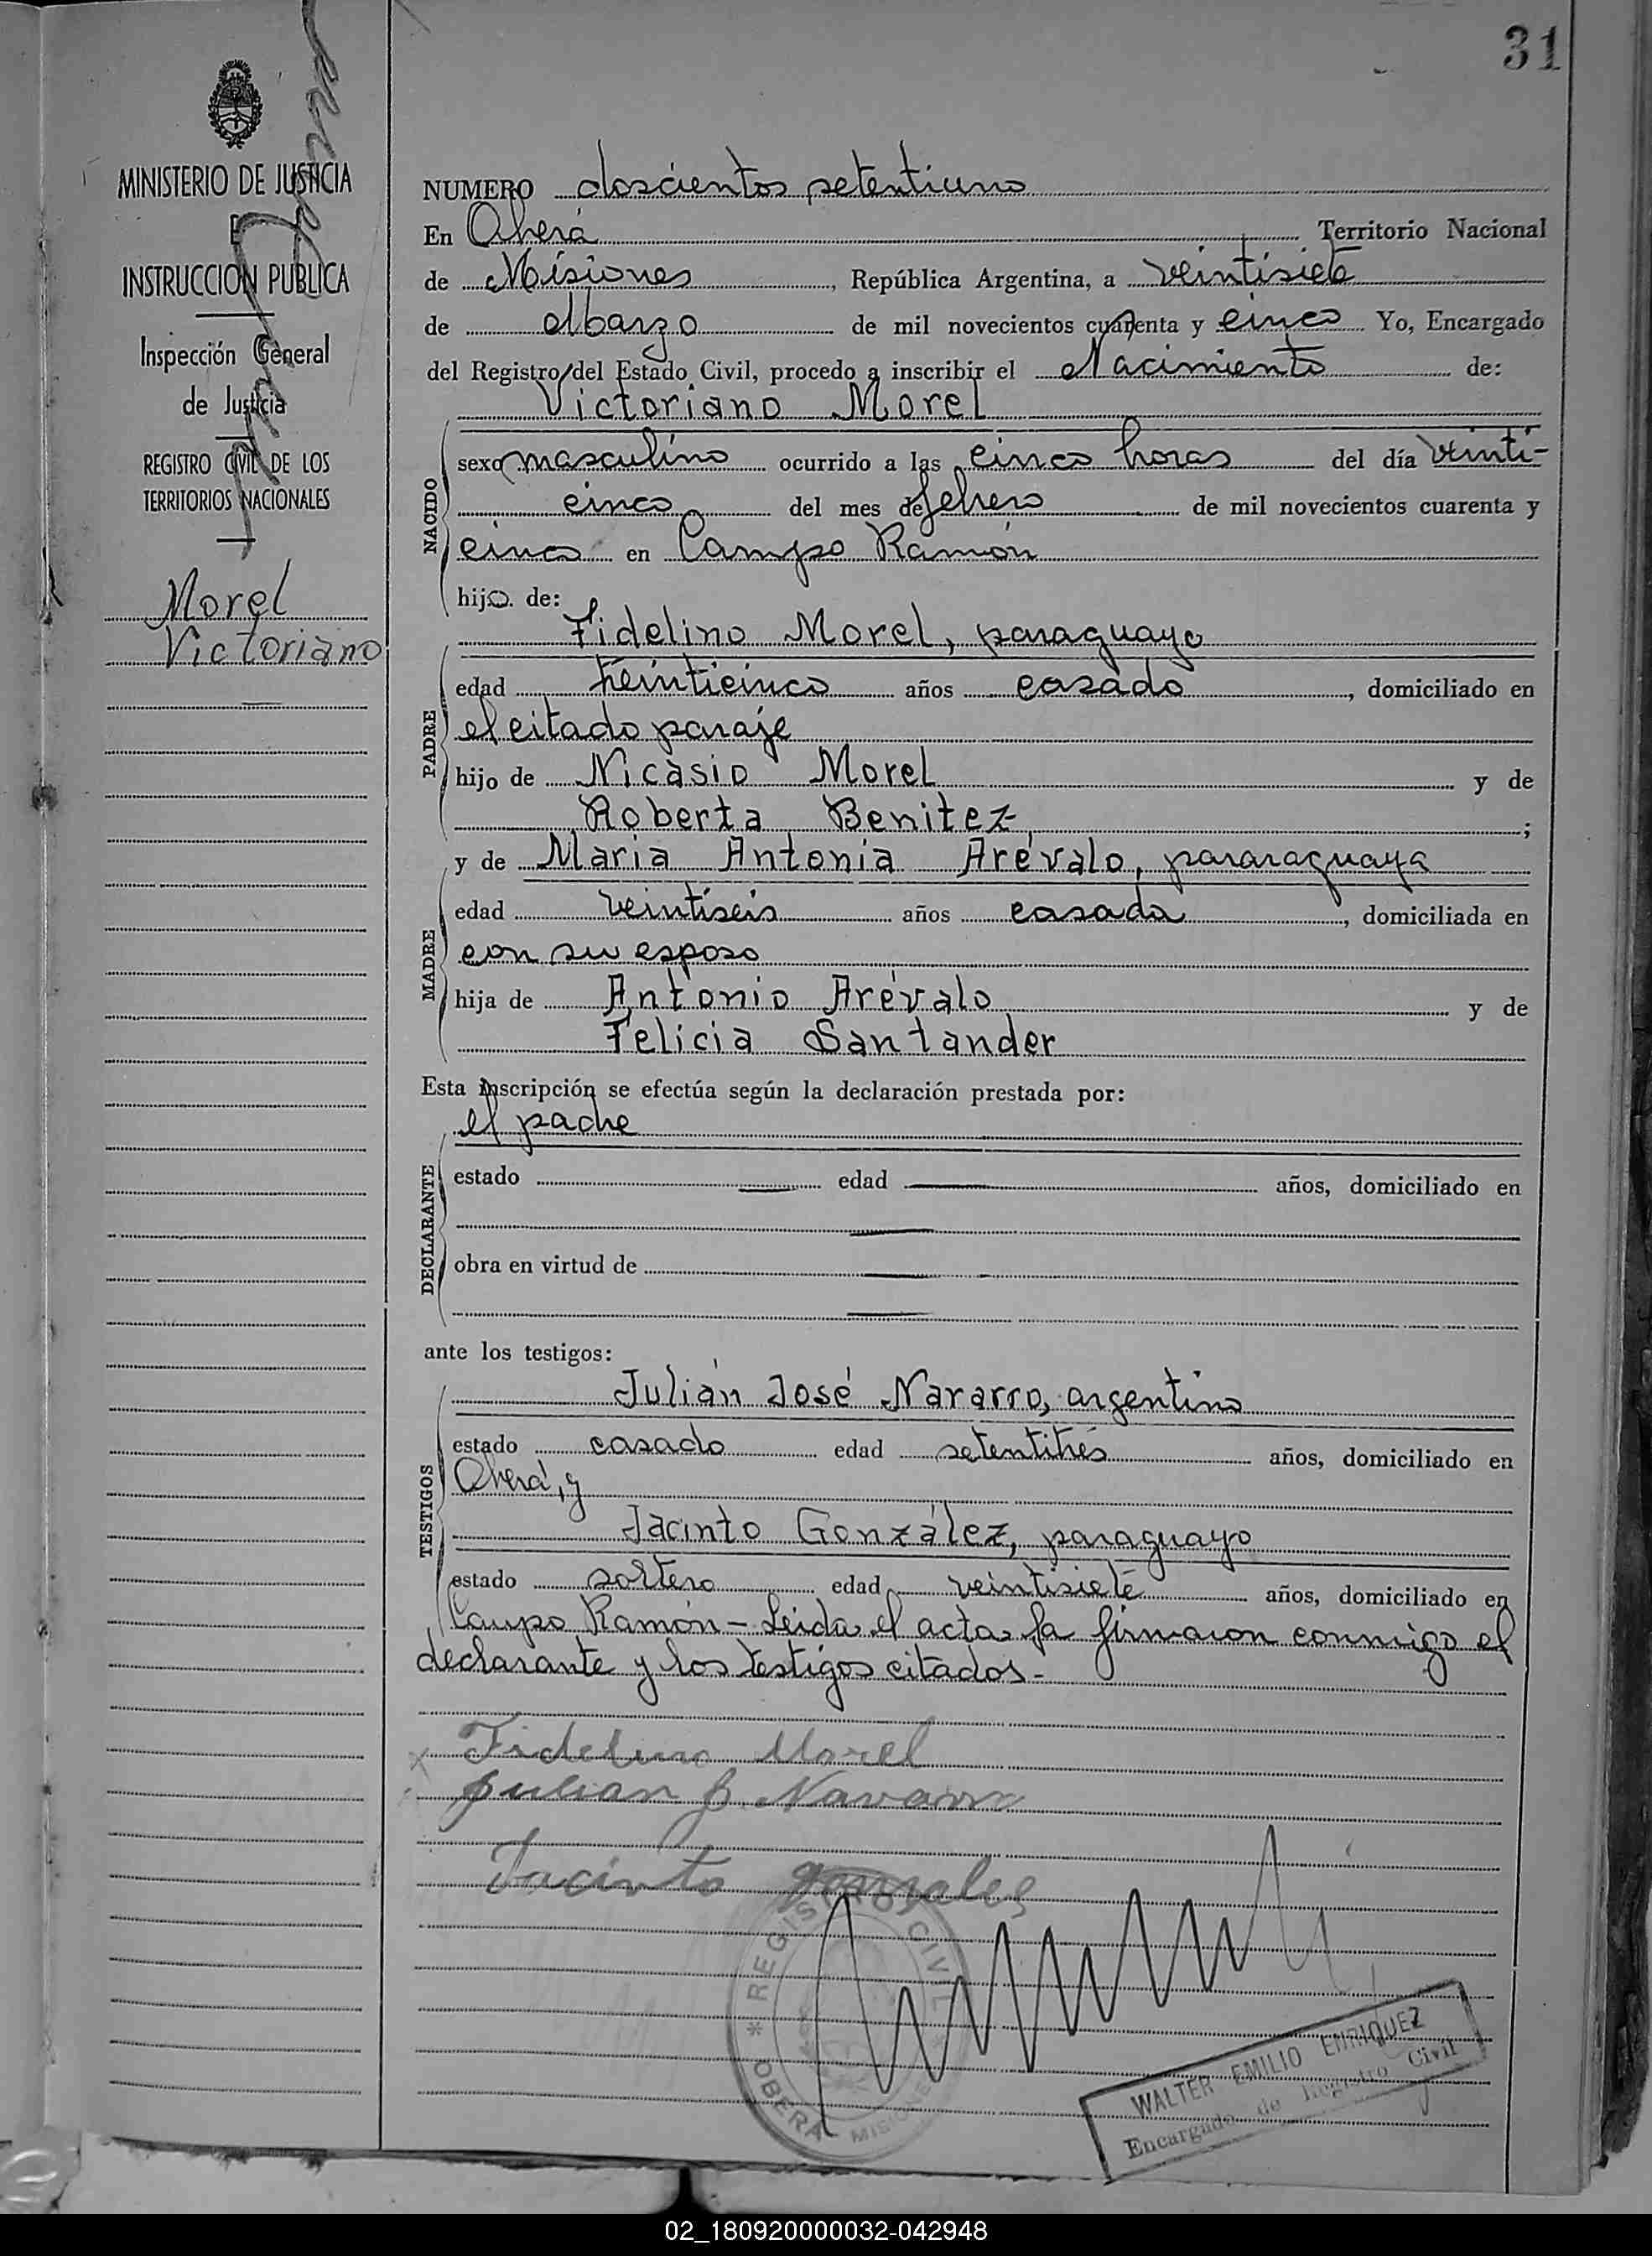 31
MINISTERIO DE JUSTICIA
E
INSTRUCCION PUBLICA
Inspección General
de Justicia
REGISTRO CIVIL DE LOS
TERRITORIOS NACIONALES
Morel
Victoriano
NUMERO doscientos setentiuno
En Oberá Territorio Nacional
de Misiones, República Argentina, a veintisiete
de Marzo de mil novecientos cuarenta y cinco Yo, Encargado
del Registro del Estado Civil, procedo a inscribir el Nacimiento de:
Victoriano Morel
NACIDO
sexo masculino ocurrido a las cinco horas del día veinti-
cinco del mes de febrero de mil novecientos cuarenta y
cinco en Campo Ramón
hijo de:
Fidelino Morel, paraguayo
PADRE
edad veinticinco años casado, domiciliado en
el citado paraje
hijo de Nicasio Morel y de
Roberta Benitez;
y de Maria Antonia Arévalo, pararaguaya
MADRE
edad veintiseis años casada, domiciliada en
con su esposo
hija de Antonio Arévalo y de
Felicia Santander
Esta inscripción se efectúa según la declaración prestada por:
el padre
DECLARANTE
estado edad años, domiciliado en
obra en virtud de
ante los testigos:
Julián José Navarro, argentino
TESTIGOS
estado casado edad setentitrés años, domiciliado en
Oberá, y
Jacinto González, paraguayo
estado soltero edad veintisiete años, domiciliado en
Campo Ramón - Leida el acta la firmaron conmigo el
declarante y los testigos citados.-
Fidelino Morel
Julian J. Navarro
Jacinto gonzales
* REGISTRO CIVIL
OBERA MISIONES
WALTER EMILIO ENRIQUEZ
Encargado de Registro Civil
02_180920000032-042948